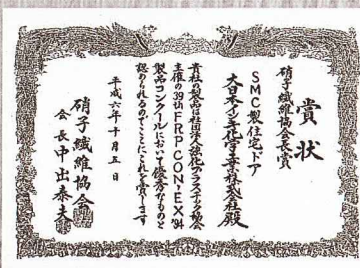 賞状
硝子繊維協会長賞
SMC製住宅ドア
大日本インキ化学工業株式会社殿
貴社の製品は社団法人強化プラスチック協会
主催の39th FRP CON,EX'94
製品コンクールにおいて優秀なものと
認められるのでここにこれを賞します
平成六年十月五日
硝子繊維協会
会長中出泰夫